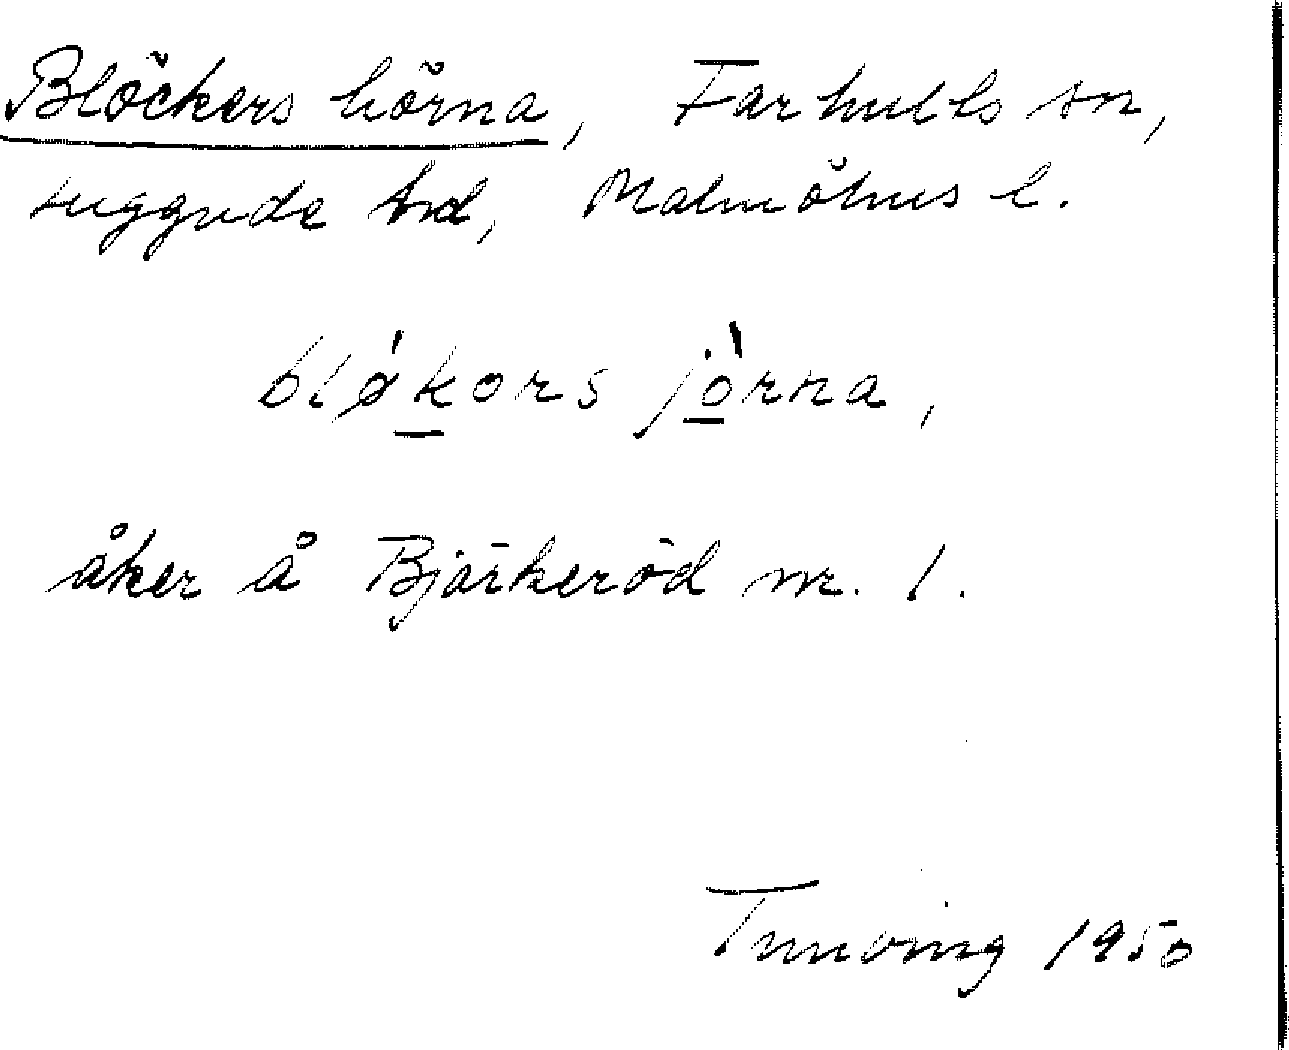 Blöckers hörna, Farhults sn,
Luggude hd, Malmöhus l.
bløkors jòrna,
åker å Bjärkeröd nr. 1.
Tunving 1950